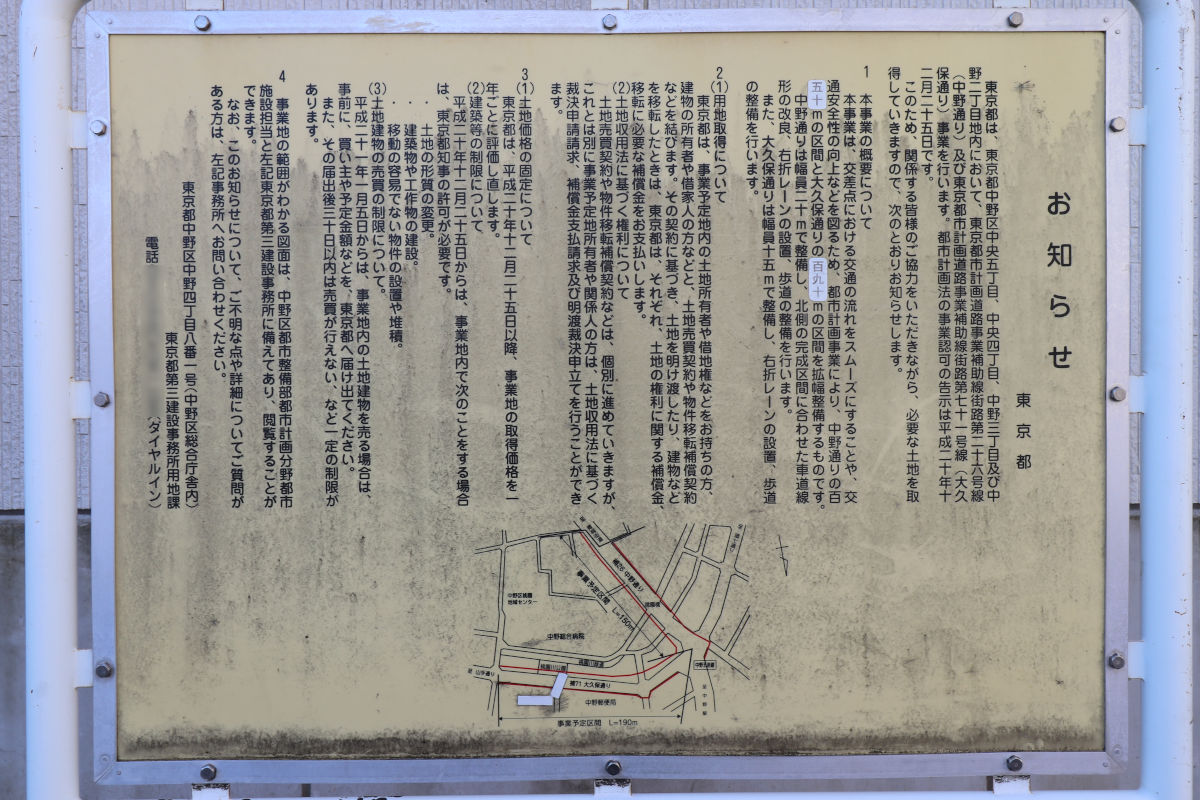 お知らせ
東京都
東京都は、東京都中野区中央五丁目、中央四丁目、中野三丁目及び中
野二丁目地内において、東京都市計画道路事業補助線街路第二十六号線
（中野通り）及び東京都市計画道路事業補助線街路第七十一号線（大久
保通り）事業を行います。都市計画法の事業認可の告示は平成二十年十
二月二十五日です。
このため、関係する皆様のご協力をいただきながら、必要な土地を取
得していきますので、次のとおりお知らせします。
1 本事業の概要について
本事業は、交差点における交通の流れをスムーズにすることや、交
通安全性の向上などを図るため、都市計画事業により、中野通りの百
五十ｍの区間と大久保通りの百九十ｍの区間を拡幅整備するものです。
中野通りは幅員二十ｍで整備し、北側の完成区間に合わせた車道線
形の改良、右折レーンの設置、歩道の整備を行います。
また、大久保通りは幅員十五ｍで整備し、右折レーンの設置、歩道
の整備を行います。
2
(1)用地取得について
東京都は、事業予定地内の土地所有者や借地権などをお持ちの方、
建物の所有者や借家人の方などと、土地売買契約や物件移転補償契約
などを結びます。その契約に基づき、土地を明け渡したり、建物など
を移転したときは、東京都は、それぞれ、土地の権利に関する補償金、
移転に必要な補償金をお支払いします。
(2)土地収用法に基づく権利について
土地売買契約や物件移転補償契約などは、個別に進めていきますが、
これとは別に事業予定地所有者や関係人の方は、土地収用法に基づく
裁決申請請求、補償金支払請求及び明渡裁決申立てを行うことができ
ます。
3
(1)土地価格の固定について
東京都は、平成二十年十二月二十五日以降、事業地の取得価格を一
年ごとに評価し直します。
(2)建築等の制限について
平成二十年十二月二十五日からは、事業地内で次のことをする場合
は、東京都知事の許可が必要です。
・土地の形質の変更。
・建築物や工作物の建設。
・移動の容易でない物件の設置や堆積。
(3)土地建物の売買の制限について。
平成二十一年一月五日からは、事業地内の土地建物を売る場合は、
事前に、買い主や予定金額などを、東京都へ届け出てください。
また、その届出後三十日以内は売買が行えない、など一定の制限が
あります。
4 事業地の範囲がわかる図面は、中野区都市整備部都市計画分野都市
施設担当と左記東京都第三建設事務所に備えてあり、閲覧することが
できます。
なお、このお知らせについて、ご不明な点や詳細についてご質問が
ある方は、左記事務所へお問い合わせください。
東京都中野区中野四丁目八番一号（中野区総合庁舎内）
東京都第三建設事務所用地課
電話（ダイヤルイン）
補26 中野通り
事業予定区間 L=150m
桃園橋
中野区桃園
地域センター
中野総合病院
桃園川緑道
桃園川公園
至 山手通り
補71 大久保通り
中野五差路
中野郵便局
至中野駅
事業予定区間 L=190m